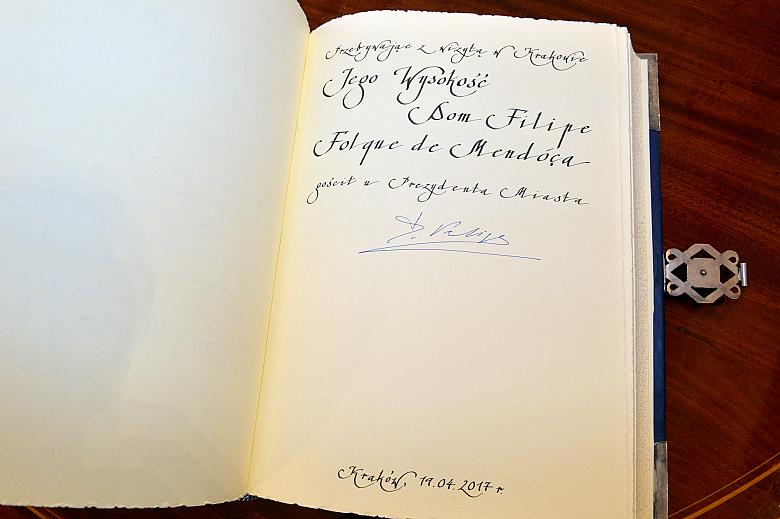 Przebywając z wizytą w Krakowie
Jego Wysokość
Dom Filipe
Folque de Mendóça
gościł u Prezydenta Miasta
D. Filipe
Kraków, 19.04.2017 r.